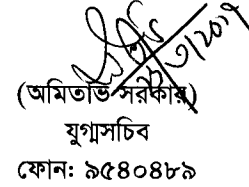 (অমিতাভ সরকার)
যুগ্মসচিব
ফোন: ৯৫৪০৪৮৯